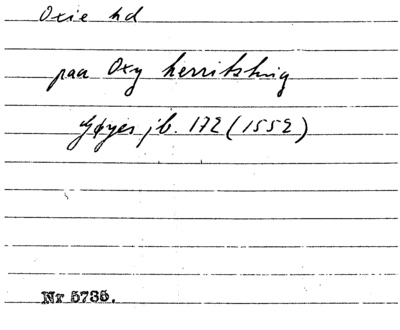 Oxie hd
paa Oxy herritzting
Gøyes jb. 172 (1552)
Nr 5735.